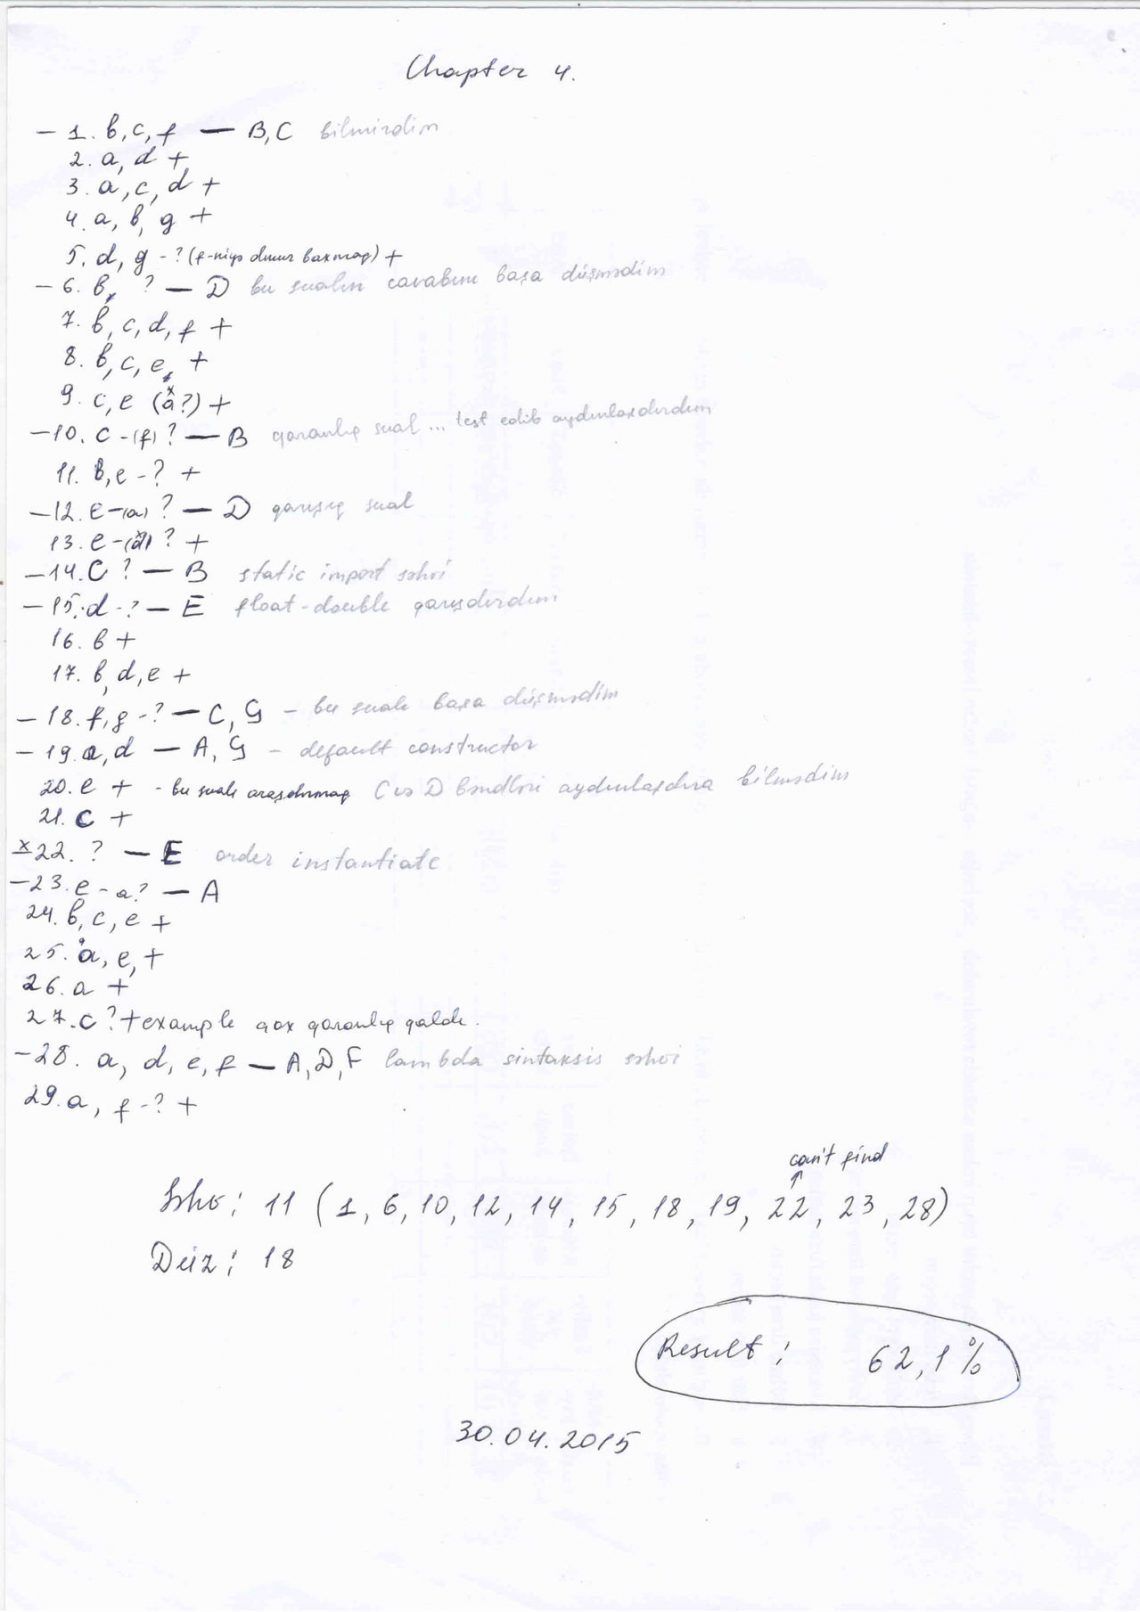 Chapter 4.
- 1. b, c, f — B, C bilmirdim
2. a, d +
3. a, c, d +
4. a, b, g +
5. d, g - ? (f-niyə baxmaq) +
- 6. b, ? — D bu sualın cavabını başa düşmədim
7. b, c, d, f +
8. b, c, e, +
9. c, e (a?) +
- 10. c - (f) ? — B qaranlıq sual ... test edib aydınlaşdırdım
11. b, e - ? +
- 12. e - (a) ? — D qarışıq sual
13. e - (d) ? +
- 14. C ? — B static import səhvi
- 15. d - ? — E float-double qarışdırdım
16. b +
17. b, d, e +
- 18. f, g - ? — C, G - bu sualı başa düşmədim
- 19. a, d — A, G - default constructor
20. e + - bu sualı araşdırmaq C və D bəndləri aydınlaşdıra bilmədim
21. C +
x22. ? — E order instantiate
- 23. e - a? — A
24. b, c, e +
25. a, e, +
26. a +
27. c ? + example çox qaranlıq qaldı.
- 28. a, d, e, f — A, D, F lambda sintaksis səhvi
29. a, f - ? +
can't find
Səhv: 11 (1, 6, 10, 12, 14, 15, 18, 19, 22, 23, 28)
Düz: 18
Result: 62,1%
30.04.2015